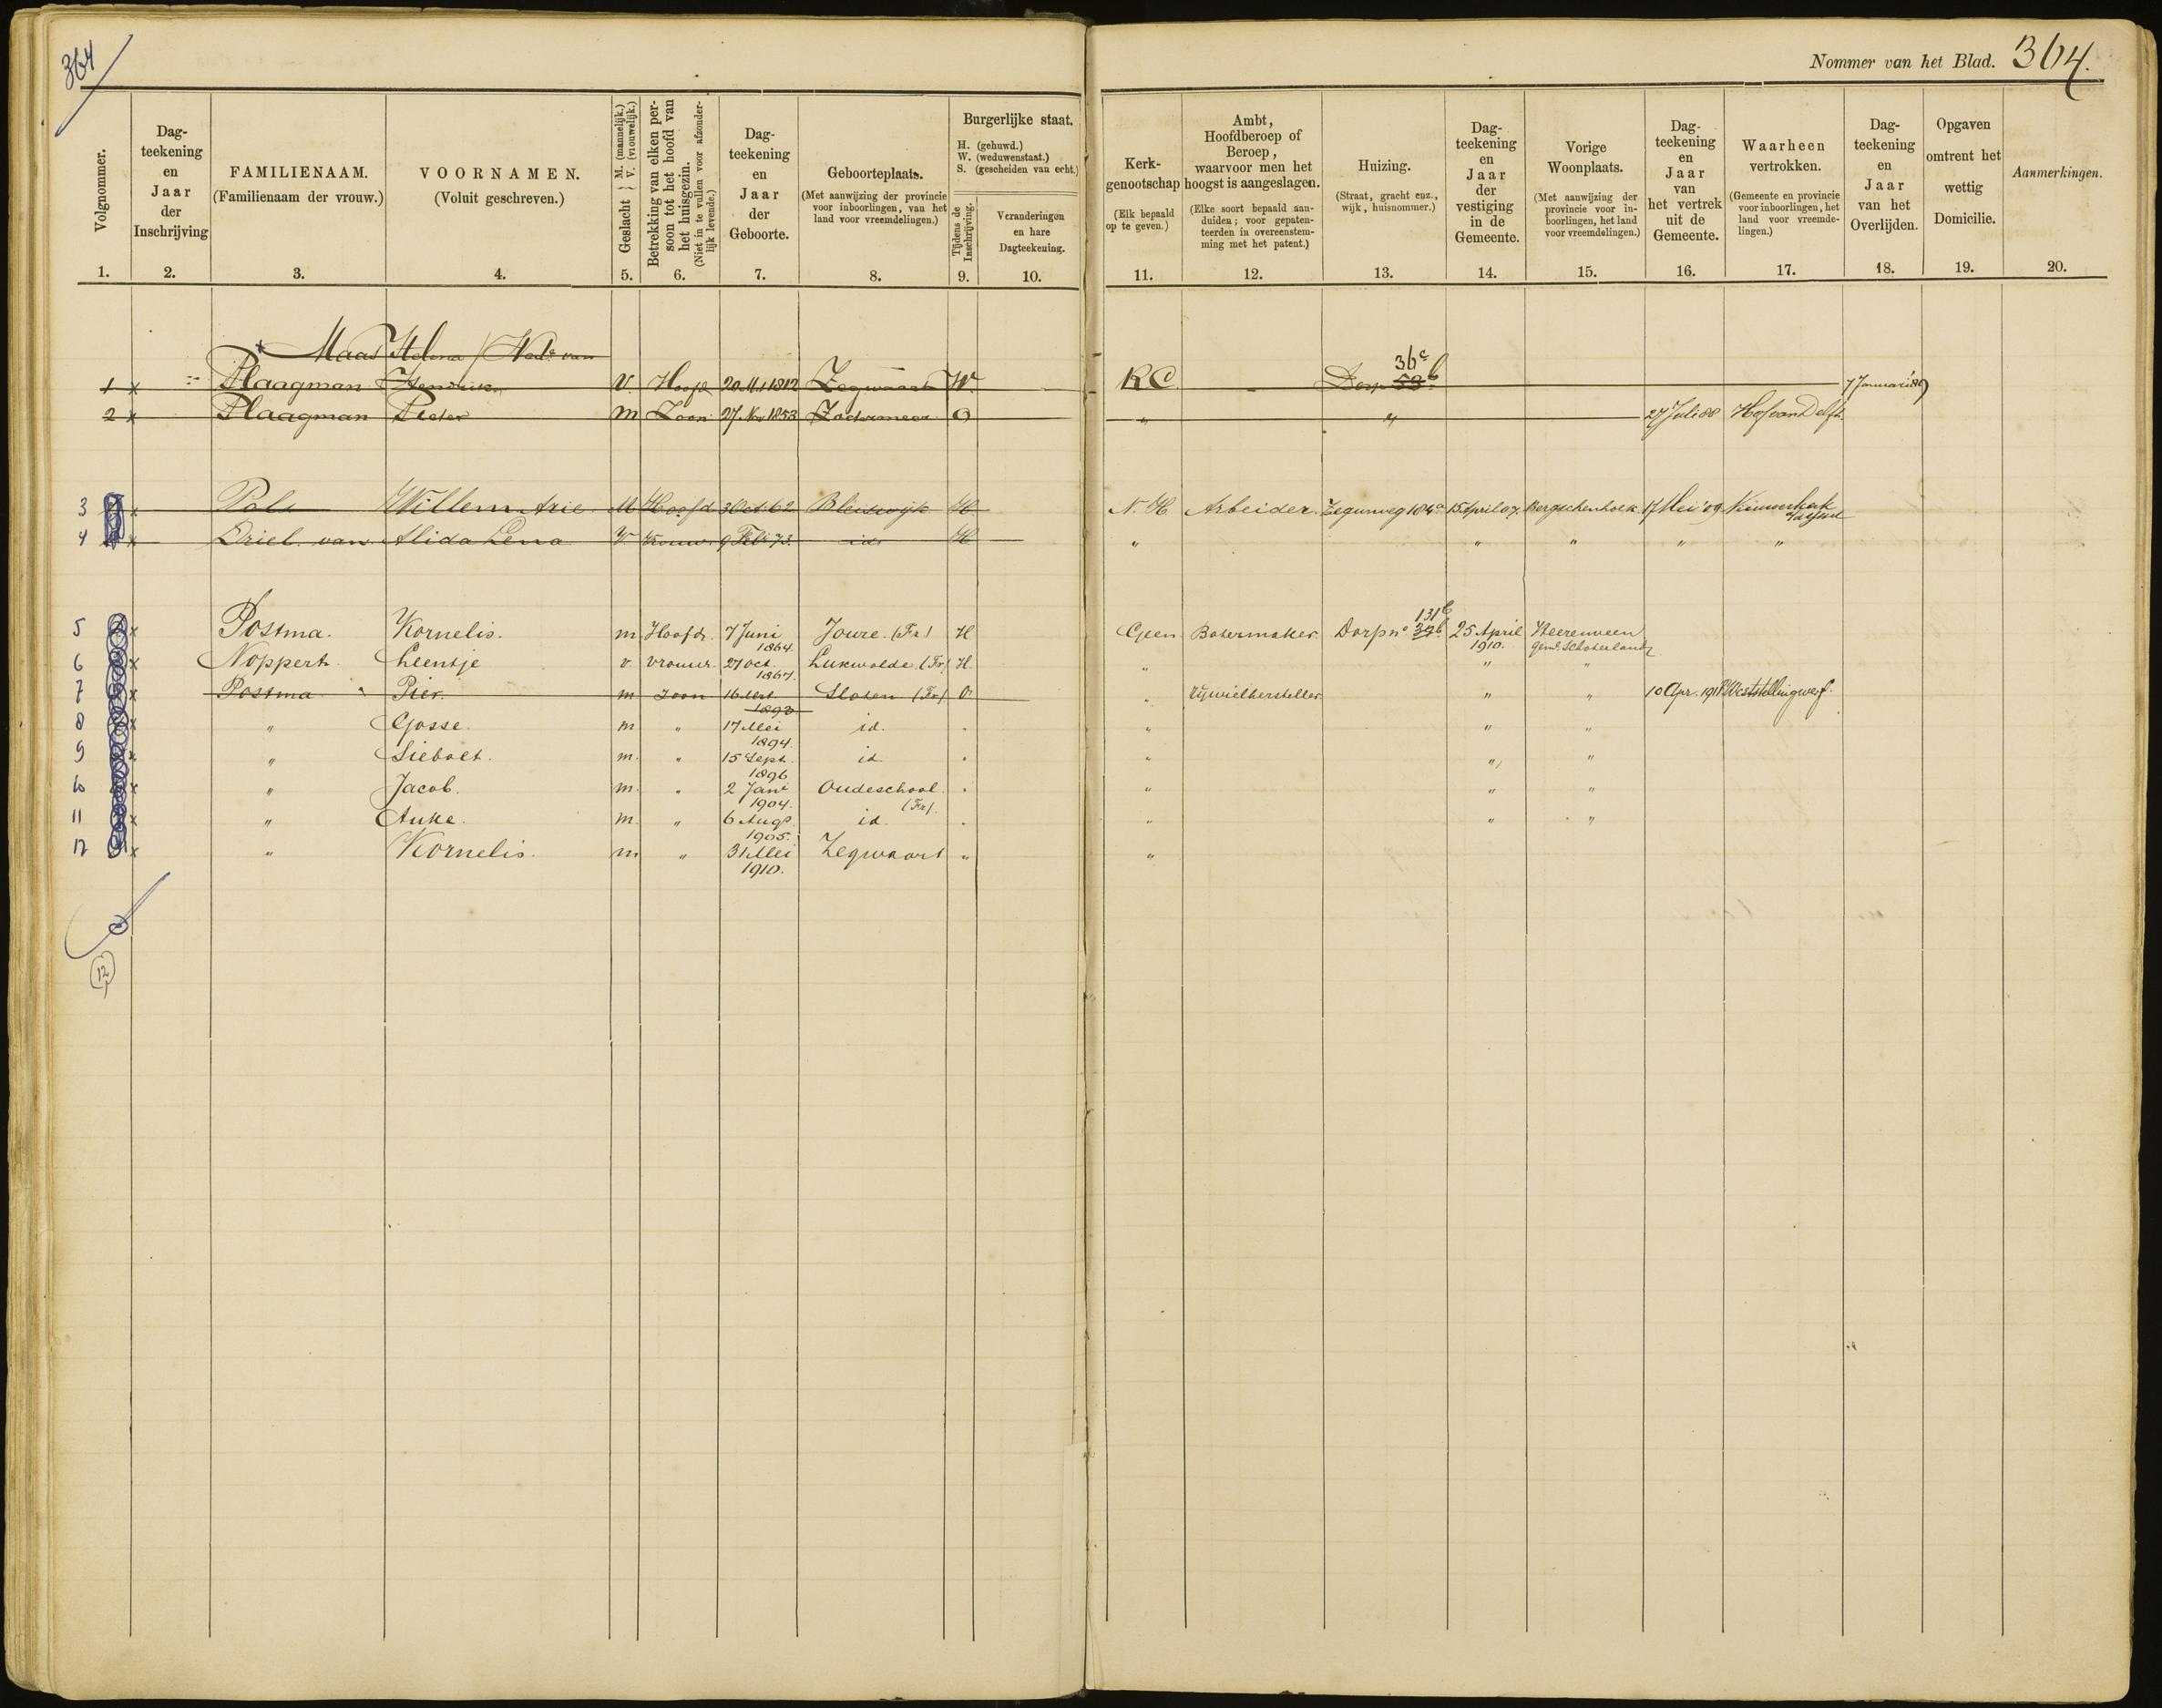 364
Nommer van het Blad. 364.
Volgnommer.
1.
Dag-
teekening
en
Jaar
der
Inschrijving
2.
FAMILIENAAM.
(Familienaam der vrouw.)
3.
VOORNAMEN.
(Voluit geschreven.)
4.
Geslacht } M. (mannelijk.) V. (vrouwelijk.)
5.
Betrekking van elken per-
soon tot het hoofd van
het huisgezin.
(Niet in te vullen voor afzonder-
lijk levende.)
6.
Dag-
teekening
en
Jaar
der
Geboorte.
7.
Geboorteplaats.
(Met aanwijzing der provincie
voor inboorlingen, van het
land voor vreemdelingen.)
8.
Burgerlijke staat.
H. (gehuwd.)
W. (weduwenstaat.)
S. (gescheiden van echt.)
Tijdens de
Inschrijving.
9.
Veranderingen
en hare
Dagteekening.
10.
Kerk-
genootschap
(Elk bepaald
op te geven.)
11.
Ambt,
Hoofdberoep of
Beroep,
waarvoor men het
hoogst is aangeslagen.
(Elke soort bepaald aan-
duiden; voor gepaten-
teerden in overeenstem-
ming met het patent.)
12.
Huizing.
(Straat, gracht enz.,
wijk, huisnommer.)
13.
Dag-
teekening
en
Jaar
der
vestiging
in de
Gemeente.
14.
Vorige
Woonplaats.
(Met aanwijzing der
provincie voor in-
boorlingen, het land
voor vreemdelingen.)
15.
Dag-
teekening
en
Jaar
van
het vertrek
uit de
Gemeente.
16.
Waarheen
vertrokken.
(Gemeente en provincie
voor inboorlingen, het
land voor vreemde-
lingen.)
17.
Dag-
teekening
en
Jaar
van het
Overlijden.
18.
Opgaven
omtrent het
wettig
Domicilie.
19.
Aanmerkingen.
20.
Maas Helena / Wede van
1 x Plaagman Hendrik V. Hoofd 1812 Zegwaart W. R C Dorp 53 b 36 c 7 Januari '89
2 x Plaagman Pieter M Zoon 27 Nov 1853 Zoetermeer O " " 27 Juli 88 Hof van Delft
3 x Pols Willem Arie M Hoofd 3 Oct. 62 Bleiswijk H N. H Arbeider Zegwweg 184a 15 April 07. Bergschenhoek 17 Mei '09 Nieuwerkerk a/d IJssel
4 x Driel van Alida Lena V. Vrouw 9 Feb: 73. id. H " " " " "
5 x Postma. Kornelis. m Hoofd. 7 Juni 1864. Joure. (Fr) H Geen Botermaker. Dorp no 131 b 25 April 1910. Heerenveen gem. Schoterland
6 x Noppert. Leentje v vrouw. 27 Oct. 1867. Lukswolde (Fr) H. " " "
7 x Postma Pier. m zoon 16 Sloten (Fr) O " Rijwielhersteller " " 10 Apr. 1918 Weststellingwerf.
8 x " Gosse. m " 17 Mei 1894. id. . " " "
9 x " Siebolt. m. " 15 Sept. 1896 id . " " "
10 x " Jacob. m. " 2 Jan 1904. Oudeschool (Fr). . " " "
11 x " Auke. m. " 6 Augs 1905. id . " " "
12 x " Kornelis. m " 31 Mei 1910. Zegwaart " "
12